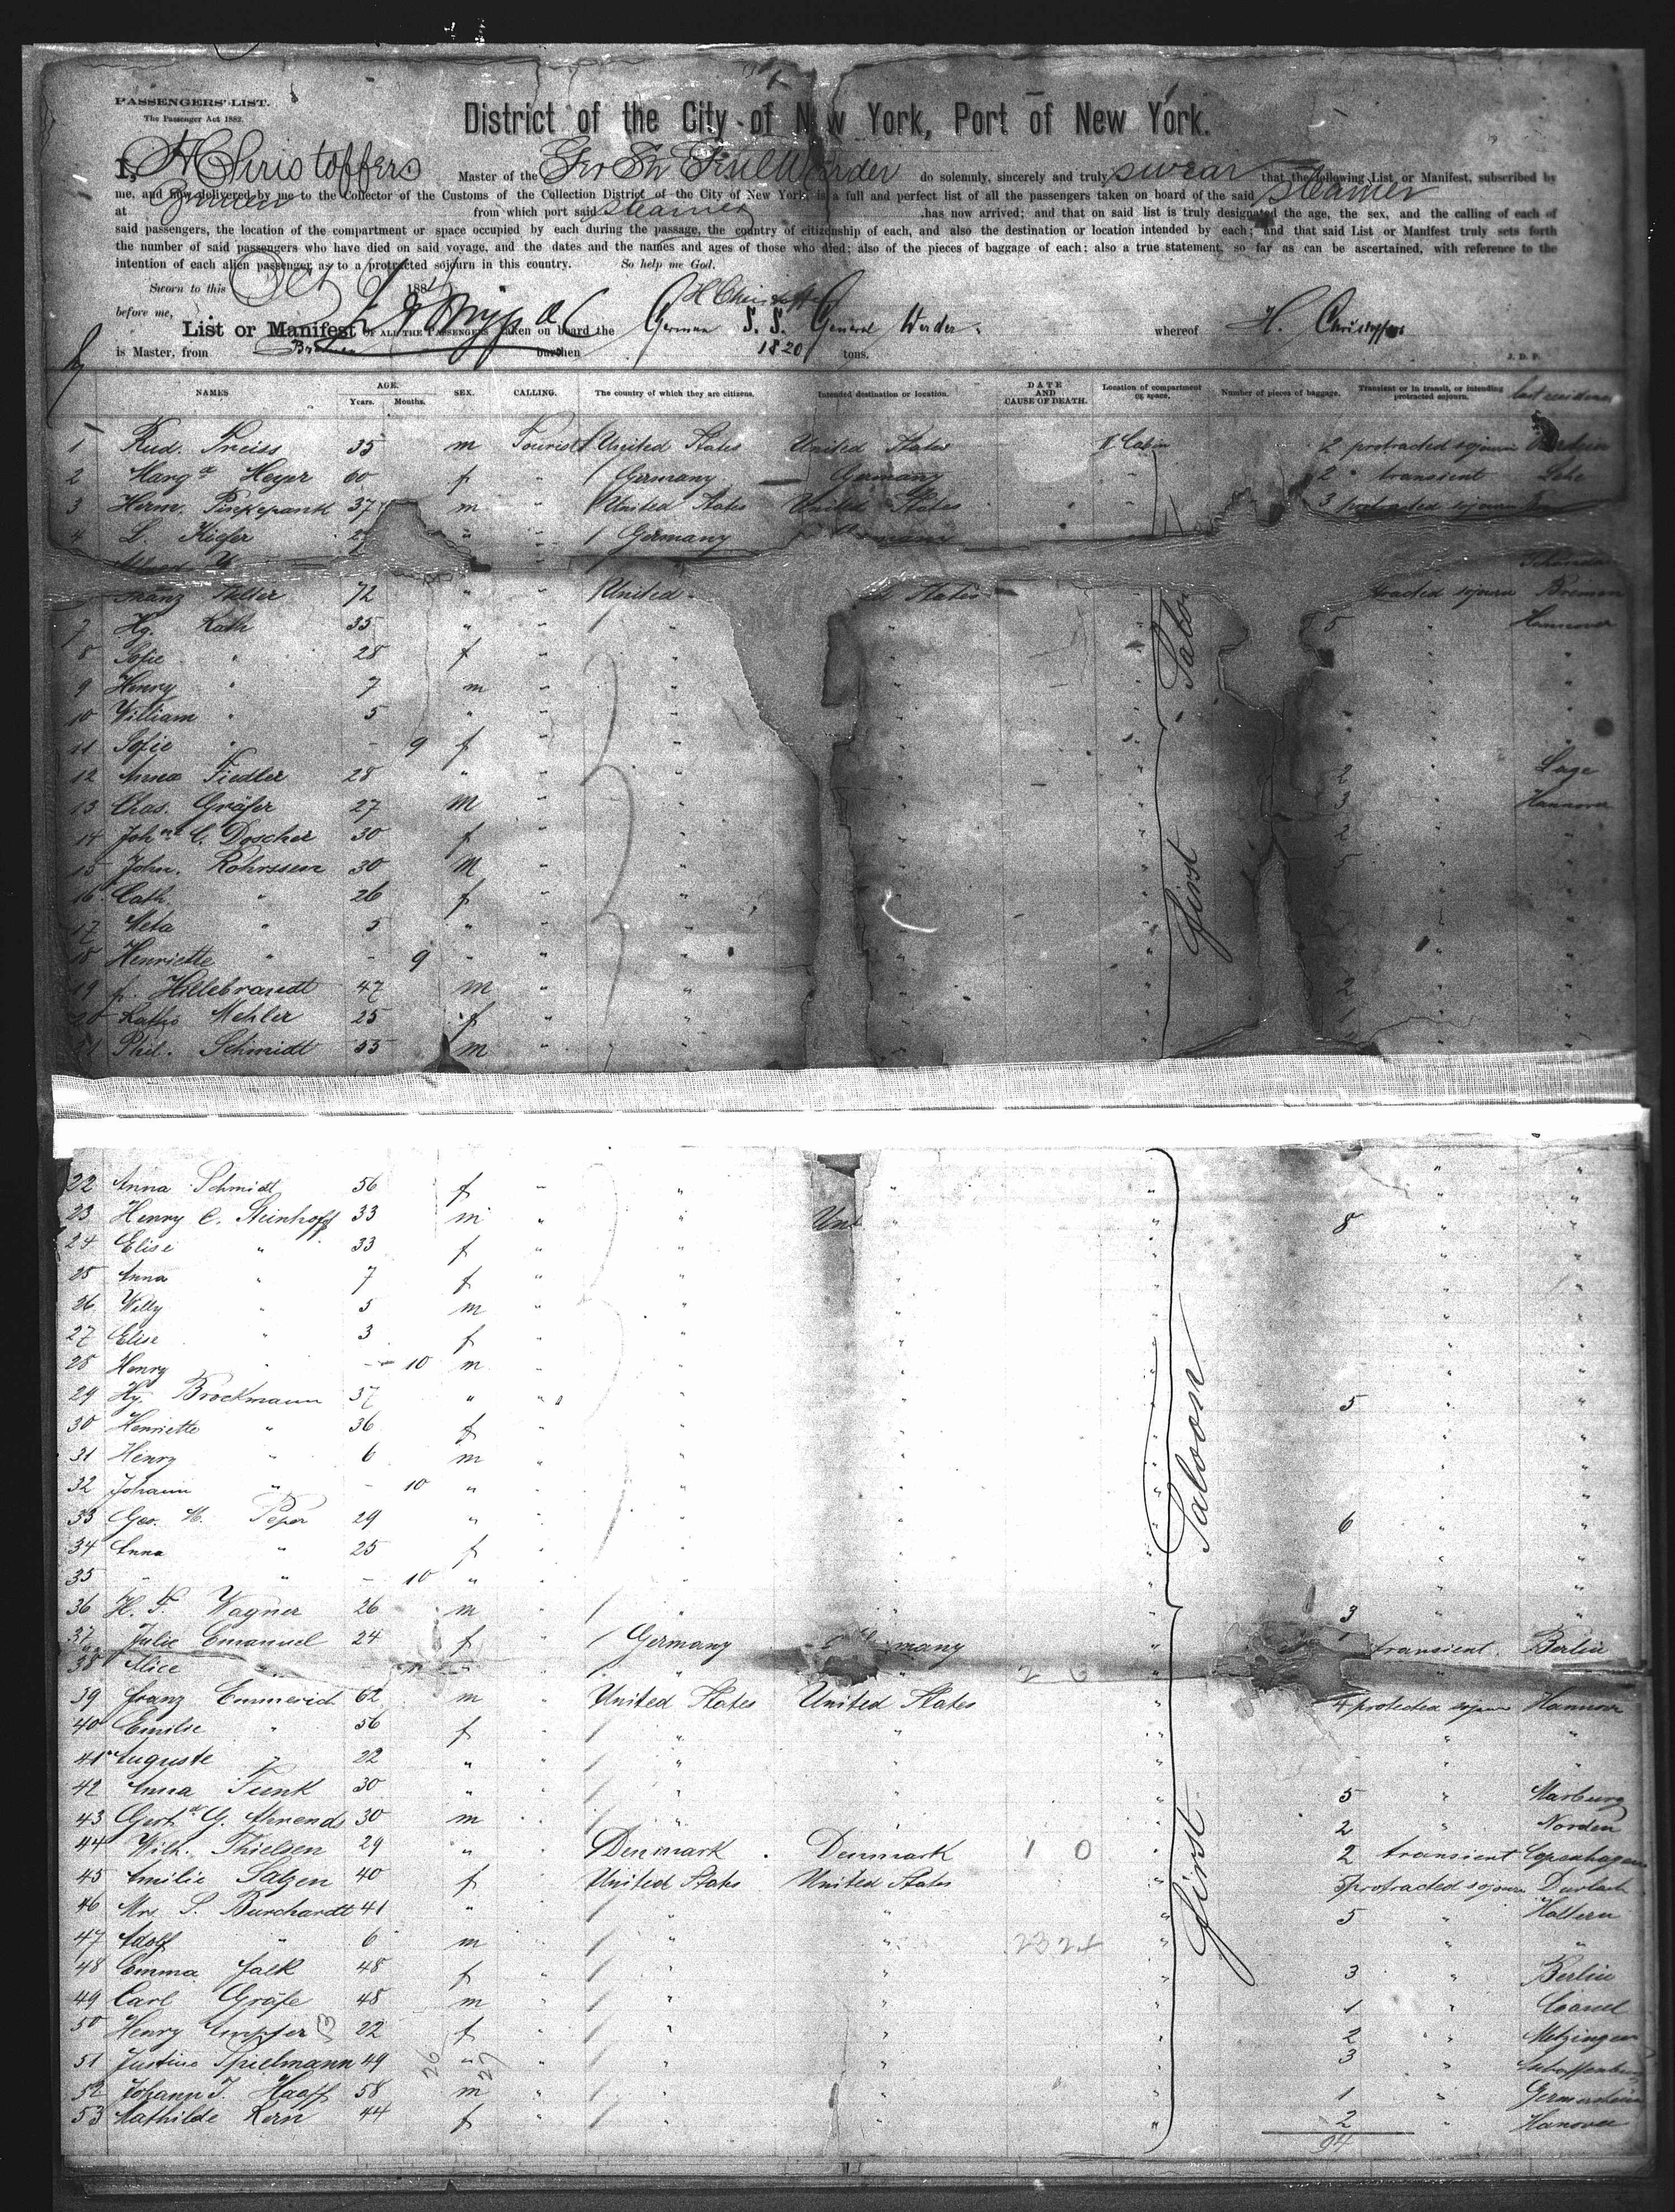 PASSENGERS' LIST.
The Passenger Act 1882.
District of the City of New York, Port of New York.
I, H Christoffers Master of the Ger Str Genl Werder do solemnly, sincerely and truly swear that the following List or Manifest, subscribed by
me, and now delivered by me to the Collector of the Customs of the Collection District of the City of New York, is a full and perfect list of all the passengers taken on board of the said steamer
at Bremen from which port said steamer has now arrived; and that on said list is truly designated the age, the sex, and the calling of each of
said passengers, the location of the compartment or space occupied by each during the passage, the country of citizenship of each, and also the destination or location intended by each; and that said List or Manifest truly sets forth
the number of said passengers who have died on said voyage, and the dates and the names and ages of those who died; also of the pieces of baggage of each; also a true statement, so far as can be ascertained, with reference to the
intention of each alien passenger as to a protracted sojourn in this country. So help me God.
Sworn to this Oct 188
before me, H Christoffers
List or Manifest OF ALL THE PASSENGERS taken on board the German S. S. General Werder whereof H. Christoffers
is Master, from Bremen burthen 1820 tons. J. D. P.
NAMES AGE. Years. Months. SEX. CALLING. The country of which they are citizens. Intended destination or location. DATE AND CAUSE OF DEATH. Location of compartment or space. Number of pieces of baggage. Transient or in transit, or intending protracted sojourn. last residence
1 Rud. Preiss 35 m Tourist United States United States II Cabin 2 protracted sojourn
2 Marg a Meyer 60 f " Germany Germany 2 transient Lehe
3 Herm. Piepkepank 37 m " United States United States 3 protracted sojourn
4 L. Kiefer " " Germany many
Franz 72 " " United States tracted sojourn Bremen
7 Hy. Rath 35 " " 5 " Hannover
8 Sofie " 28 f " "
9 Henry " 7 m " "
10 William " 5 " " "
11 Sofie " - 9 f " "
12 Anna Fiedler 28 " " 2 " Lage
13 Chas. Gräfer 27 m " 3 " Hannover
14 Joh ne C. Doscher 30 f " 2 " "
15 John. Rohrssen 30 m " 5 "
16 Cath. " 26 f " "
17 Meta " 5 " " "
18 Henriette " - 9 " " "
19 f. Hillebrandt 47 m " 2 "
20 Kathi Mehler 25 f " 1 "
21 Phil. Schmidt 55 m "
First Saloon
22 Anna Schmidt 56 f " " " " " "
23 Henry C. Steinhoff 33 m " " Unt " 8 " "
24 Elise " 33 f " " " " " "
25 Anna " 7 f " " " " " "
26 Willy " 5 m " " " " " "
27 Elise " 3 f " " " " " "
28 Henry " - 10 m " " " " " "
29 Hy. Brockmann 37 " " " " " 5 " "
30 Henriette " 36 f " " " " " "
31 Henry " 6 m " " " " " "
32 Johann " - 10 " " " " " " "
33 Geo. H. Peper 29 " " " " " 6 " "
34 Anna " 25 f " " " " " "
35 " " - 10 " " " " " " "
36 H. F. Wagner 26 m " " " " 3 " "
37 Julie Emanuel 24 f " Germany many " 1 transient Berlin
38 Alice " - " " " 2 0 " "
39 Franz Emmerich 62 m " United States United States " 4 protracted sojourn Hannover
40 Emilie " 56 f " " " " " "
41 Auguste " 22 " " " " " " "
42 Anna Funk 30 " " " " " 5 " Marburg
43 Gerh d G. Ahrends 30 m " " " " 2 " Norden
44 Wilh. Thielsen 29 " " Denmark Denmark 1 0 " 2 transient Copenhagen
45 Emilie Salzen 40 f " United States United States " 3 protracted sojourn Durlach
46 Mrs S. Burchardt 41 " " " " " 5 " Haltern
47 Adolf " 6 m " " " 23 24 " " "
48 Emma Falk 48 f " " " " 3 " Berlin
49 Carl Gräfe 48 m " " " " 1 " Cassel
50 Henry 22 f " " " " 2 " Metzingen
51 Justine Spielmann 49 " " " " " 3 "
26 27
52 Johann J. Haaff 58 m " " " " 1 " Germersheim
53 Mathilde Kern 44 f " " " " 2 " Hanover
94
First Saloon